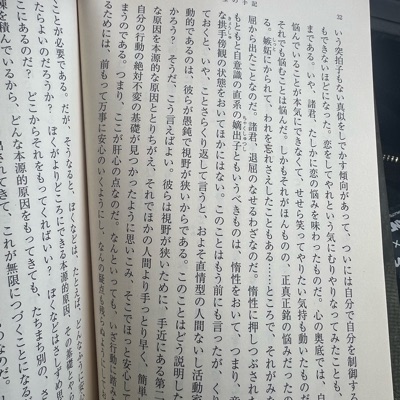 32
の手記
いう突拍子もない真似をしでかす傾向があって、ついには自分で自分を制御する
もできないほどになった。恋をしてやれという気にむりやりなってみたことも、
ある。いや、諸君、たしかに恋の悩みを味わったものだ。心の奥底では、自
悩んでいることが本気にできなくて、せせら笑ってやりたい気持も動いたものだ
それでも悩むことは悩んだ。しかもそれがほんもの、正真正銘の悩みだったの
る。嫉妬にかられて、われを忘れさえしたこともある……ところで、それがみ
屈から出たことなのだ。諸君、退屈のなせるわざなのだ。惰性に押しつぶされ
もともと自意識の直系の嫡出子ともいうべきものは、惰性をおいて、つまり、意
な拱手傍観の状態をおいてほかにはない。このことはもう前にも言ったが、くり
ておくと、いや、ことさらくり返して言うと、およそ直情型の人間ないし活動家
動的であるのは、彼らが愚鈍で視野が狭いからである。このことはどう説明した
かろう？そうだ、こう言えばよい。彼らは視野が狭いために、手近にある第二
な原因を本源的な原因ととりちがえ、それでほかの人間より手っとり早く、簡単
自分の行動の絶対不変の基礎が見つかったように思いこみ、そこでほっと安心して
まうのである。つまり、ここが肝心の点なのだ。なんといっても、いざ行動に踏み
るためには、前もって万事に安心のいくようにし、なんの疑念も残らぬようにしてお
ことが必要である。だが、そうなると、ぼくなどは、たとえば、
たらよいのだろうか？ぼくがよりどころにできる本源的原因、その基
こにあるのだ？どこからそれをもってくればいい？ぼくなどはさしずめ思
を積んでいるから、どんな本源的原因をもってきても、たちまち別の、さ
出されてきて、これが無限につづくことになる